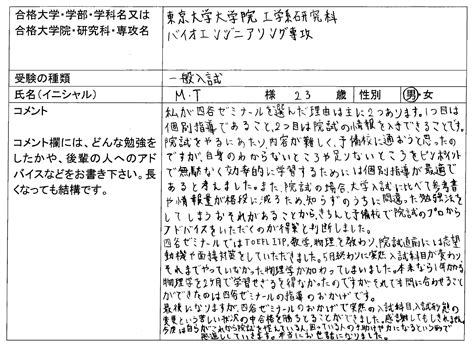 合格大学・学部・学科名又は
合格大学院・研究科・専攻名
東京大学大学院 工学系研究科
バイオエンジニアリング専攻
受験の種類
一般入試
氏名（イニシャル）
M.T 様 23 歳 性別 男・女
コメント
コメント欄には、どんな勉強を
したかや、後輩の人へのアド
バイスなどをお書き下さい。長
くなっても結構です。
私が四谷ゼミナールを選んだ理由は主に2つあります。1つ目は
個別指導であること、2つ目は院試の情報を入手できることです。
院試をやるにあたり内容が難しく、予備校に通おうと思ったの
ですが、自身のわからないところや足りないところをピンポイント
で無駄なく効率的に学習するためには個別指導が最適で
あると考えました。また、院試の場合、大学入試に比べて参考書
や情報量が格段に減るため、知らずのうちに間違った勉強法を
してしまうおそれがあることから、きちんと予備校で院試のプロから
アドバイスをいただくのが得策と判断しました。
四谷ゼミナールではTOEFL ITP、数学、物理を教わり、院試直前には志望
動機や面接対策をしていただきました。5月終わりに突然入試科目が変わり
それまでやっていなかった物理学が加わってしまいました。本来なら1年かかる
物理学を2ヶ月で学習せざるを得なかったのですが、それでも間に合わせること
ができたのは四谷ゼミナールの指導のおかげです。
最後になりますが、四谷ゼミナールのおかげで突然の入試科目、入試形態の
変更という苦しい状況の中合格を勝ちとることができました。感謝してもしきれません。
今度は自らがこれから院試を控えている人、困っている人の手助けや力になるという形で
恩返ししていきます。本当にお世話になりました。